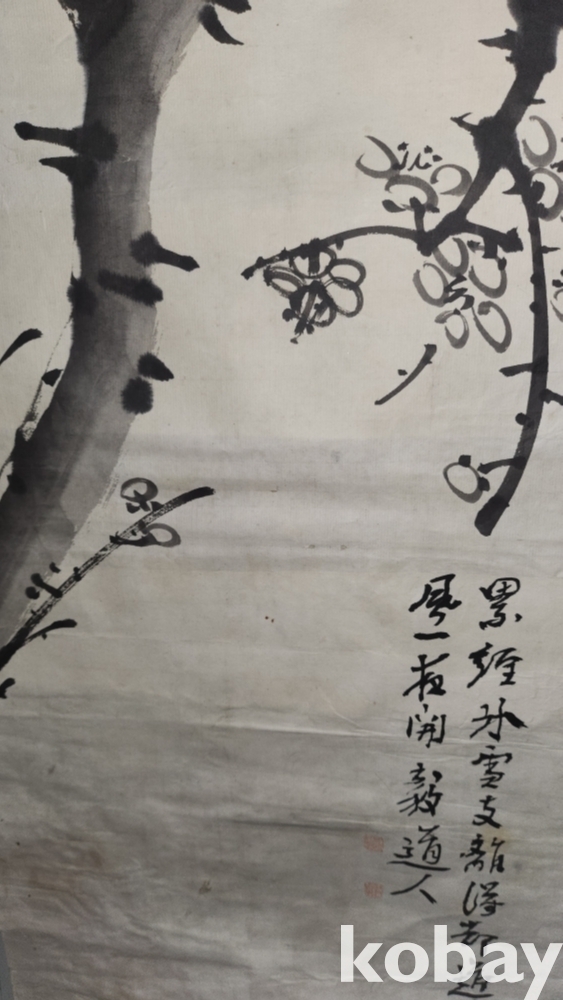 累經氷雪支離得却
風一夜開 毅道人
kobay